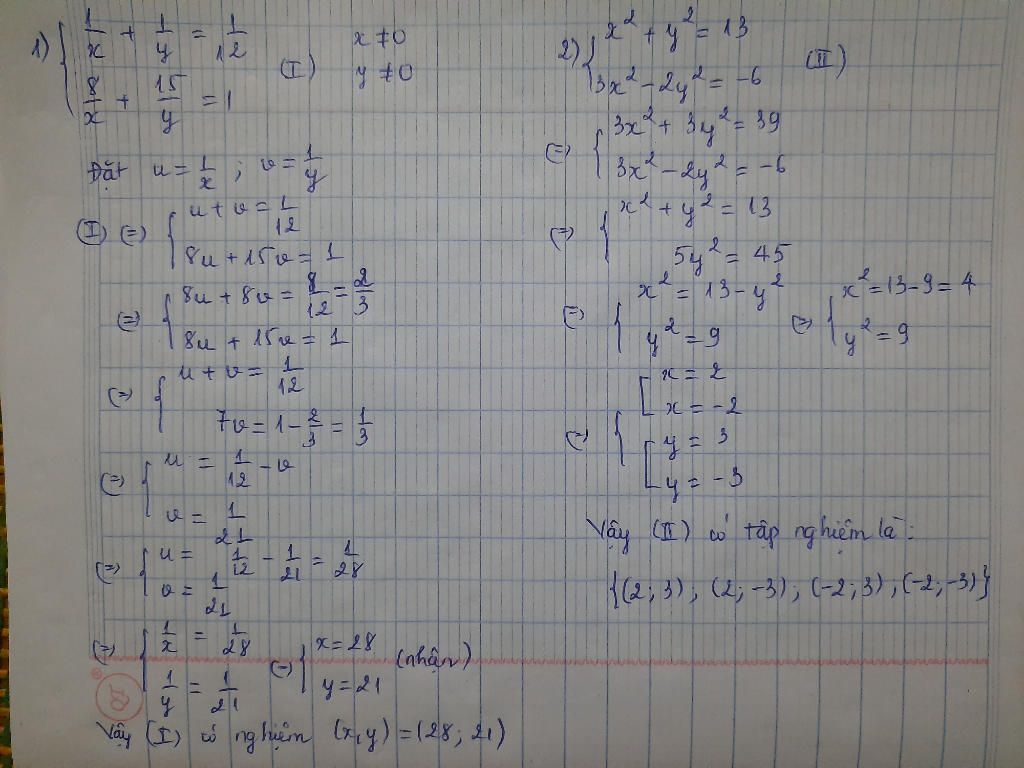 1) { 1/x + 1/y = 1/12
8/x + 15/y = 1 (I)
x ≠ 0
y ≠ 0
Đặt u = 1/x ; v = 1/y
(I) (=) { u + v = 1/12
8u + 15v = 1
(=) { 8u + 8v = 8/12 = 2/3
8u + 15v = 1
(=) { u + v = 1/12
7v = 1 - 2/3 = 1/3
(=) { u = 1/12 - v
v = 1/21
(=) { u = 1/12 - 1/21 = 1/28
v = 1/21
(=) { 1/x = 1/28
1/y = 1/21
(=) { x = 28
y = 21 (nhận)
Vậy (I) có nghiệm (x,y) = (28; 21)
2) { x² + y² = 13
3x² - 2y² = -6 (II)
(=) { 3x² + 3y² = 39
3x² - 2y² = -6
(=) { x² + y² = 13
5y² = 45
(=) { x² = 13 - y²
y² = 9
(=) { x² = 13 - 9 = 4
y² = 9
(=) { [ x = 2
x = -2
[ y = 3
y = -3
Vậy (II) có tập nghiệm là:
{(2; 3); (2; -3); (-2; 3); (-2; -3)}